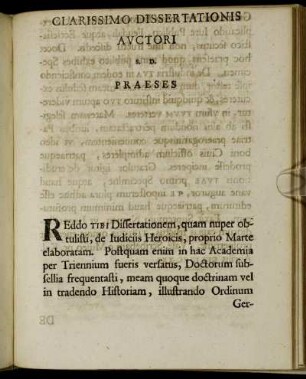 CLARISSIMO DISSERTATIONIS
AVCTORI
S. D.
PRAESES
REddo TIBI Dissertationem, quam nuper ob-
tulisti, de Iudiciis Heroicis, proprio Marte
elaboratam. Postquam enim in hac Academia
per Triennium fueris versatus, Doctorum sub-
sellia frequentasti, meam quoque doctrinam vel
in tradendo Historiam, illustrando Ordinum
Ger-